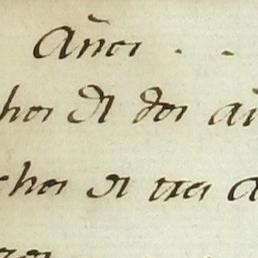 Años
hos de dos añ
chos de tres a